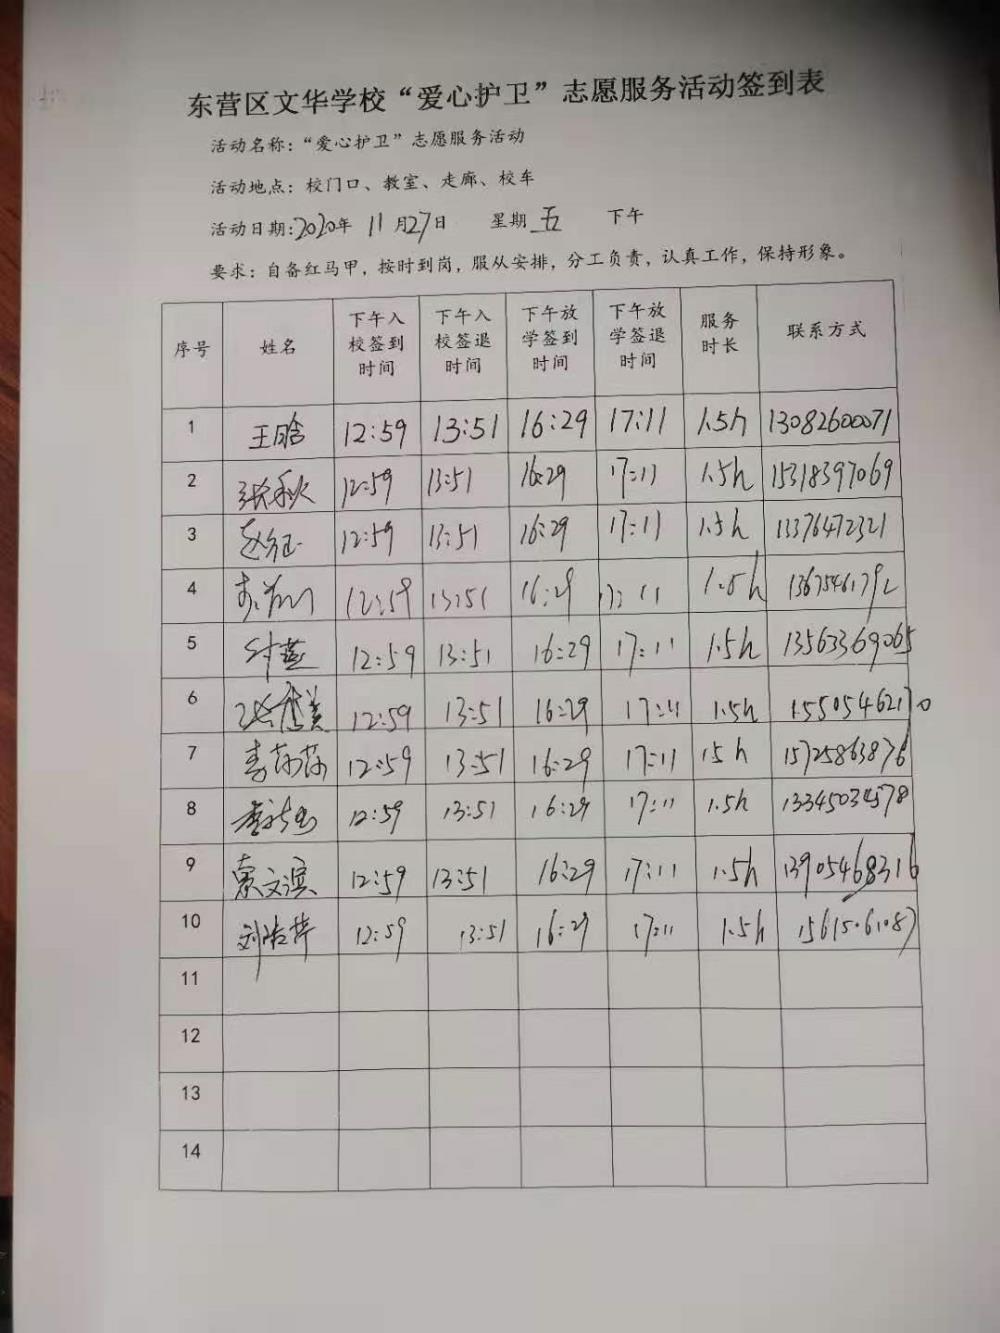 东营区文华学校“爱心护卫”志愿服务活动签到表
活动名称:“爱心护卫”志愿服务活动
活动地点: 校门口、教室、走廊、校车
活动日期:2020年 11月27日 星期五 下午
要求: 自备红马甲, 按时到岗, 服从安排, 分工负责, 认真工作, 保持形象。
序号 姓名 下午入校签到时间 下午入校签退时间 下午放学签到时间 下午放学签退时间 服务时长 联系方式
1 王晗 12:59 13:51 16:29 17:11 1.5h 13082600071
2 张秋 12:59 13:51 16:29 17:11 1.5h 15318397069
3 赵征 12:59 13:51 16:29 17:11 1.5h 13376472321
4 12:59 13:51 16:29 17:11 1.5h 13675461792
5 付蕊 12:59 13:51 16:29 17:11 1.5h 13563369065
6 12:59 13:51 16:29 17:11 1.5h 15505462170
7 李莎莎 12:59 13:51 16:29 17:11 1.5h 15725863876
8 12:59 13:51 16:29 17:11 1.5h 13345034578
9 索文滨 12:59 13:51 16:29 17:11 1.5h 13905468316
10 12:59 13:51 16:29 17:11 1.5h
11
12
13
14